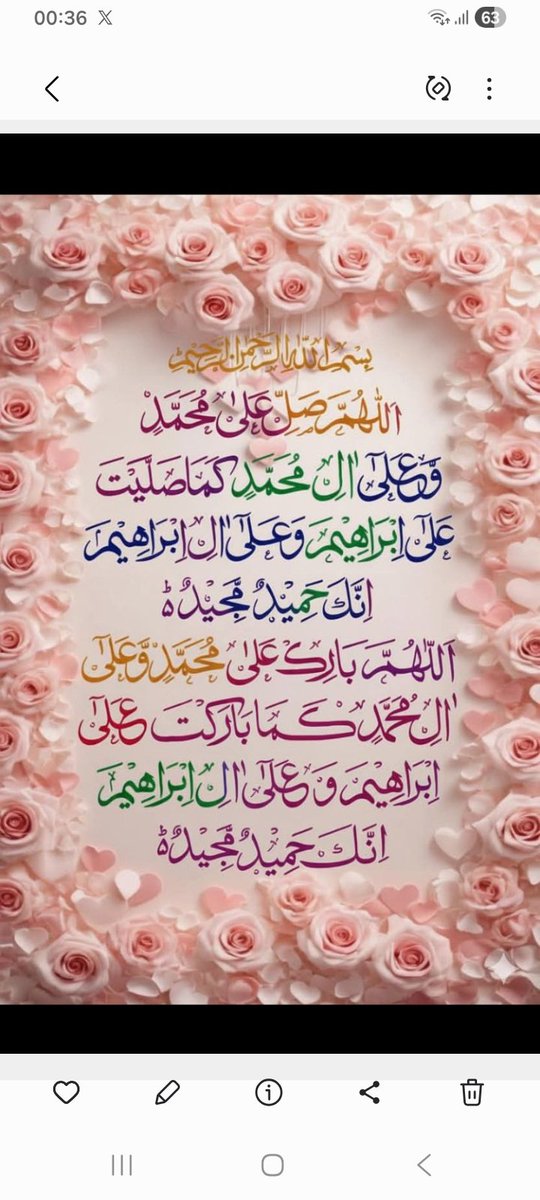 00:36 X 63
بِسْمِ اللّٰهِ الرَّحْمٰنِ الرَّحِيْمِ
اَللّٰهُمَّ صَلِّ عَلٰى مُحَمَّدٍ
وَّعَلٰٓى اٰلِ مُحَمَّدٍ كَمَا صَلَّيْتَ
عَلٰٓى اِبْرَاهِيْمَ وَعَلٰٓى اٰلِ اِبْرَاهِيْمَ
اِنَّكَ حَمِيْدٌ مَّجِيْدٌ ؕ
اَللّٰهُمَّ بَارِكْ عَلٰى مُحَمَّدٍ وَّعَلٰٓى
اٰلِ مُحَمَّدٍ كَمَا بَارَكْتَ عَلٰٓى
اِبْرَاهِيْمَ وَعَلٰٓى اٰلِ اِبْرَاهِيْمَ
اِنَّكَ حَمِيْدٌ مَّجِيْدٌ ؕ